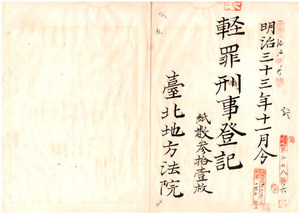 明治三十三年十一月分
軽罪刑事登記
紙数参拾壹枚
臺北地方法院